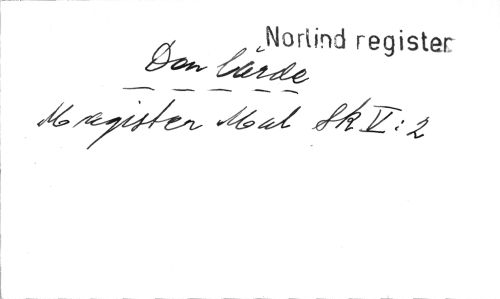 Norlind register
Den lärde
Magister Mal Sk V:2